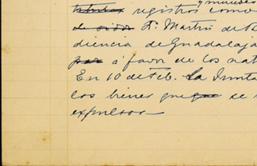 registros como
D. Martín de
diencia de Guadalaja
á favor de los nat
En 10 de Feb. la Junta
los bienes que se
expulsos